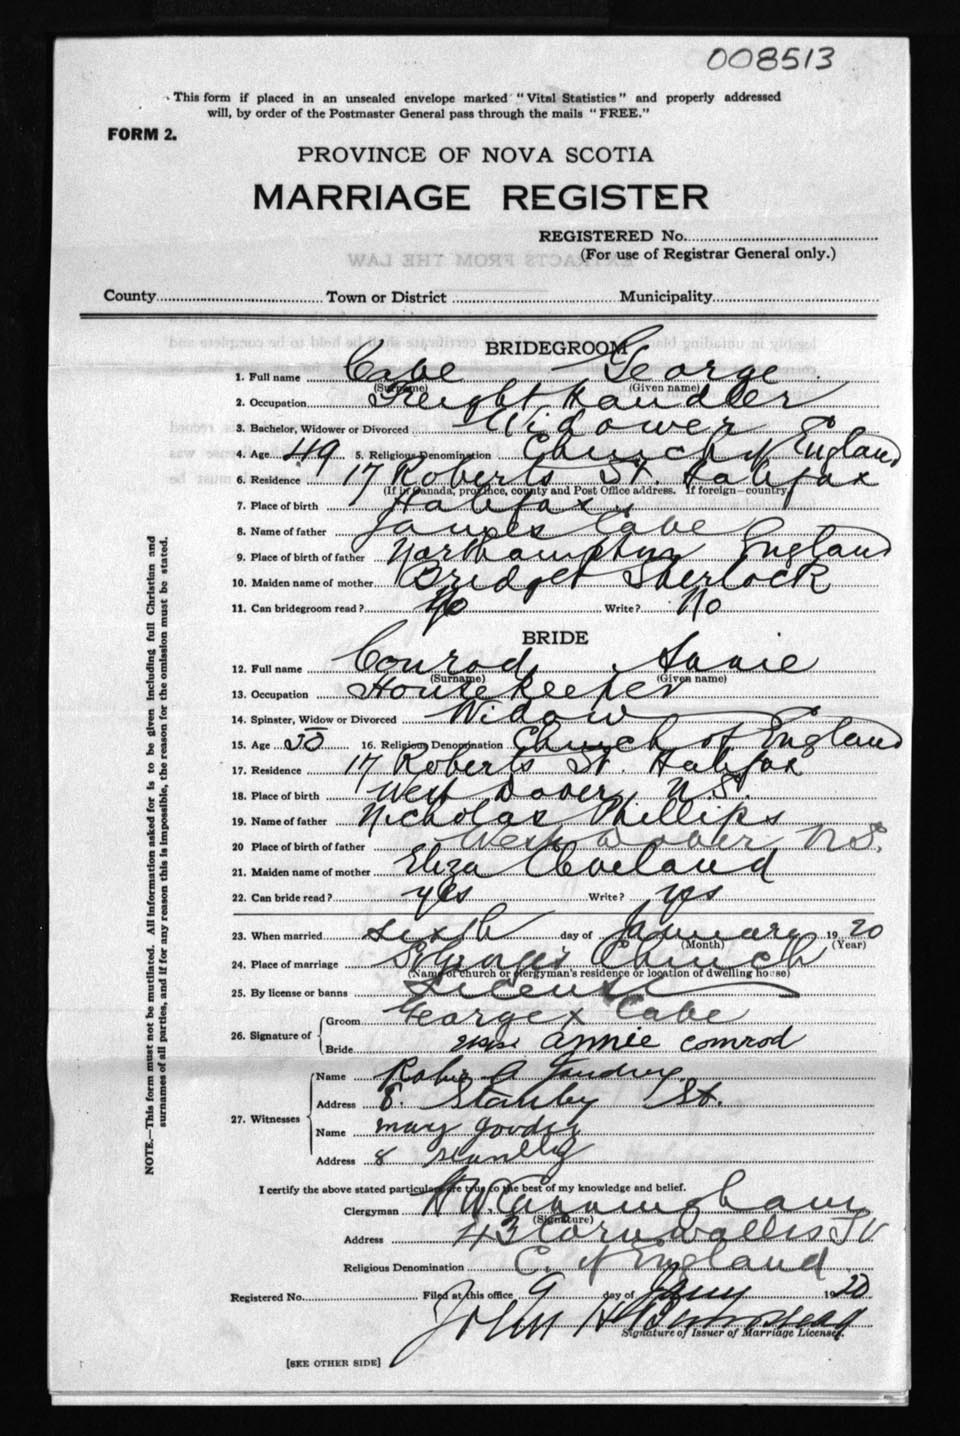 008513
This form if placed in an unsealed envelope marked "Vital Statistics" and properly addressed
will, by order of the Postmaster General pass through the mails "FREE."
FORM 2.
PROVINCE OF NOVA SCOTIA
MARRIAGE REGISTER
REGISTERED No.
(For use of Registrar General only.)
EXTRACTS FROM THE LAW
County Town or District Municipality
BRIDEGROOM
1. Full name Cabe George
(Surname) (Given name)
2. Occupation Freight Handler
3. Bachelor, Widower or Divorced Widower
4. Age 49 5. Religious Denomination Church of England
6. Residence 17 Roberts St. Halifax
(If in Canada, province, county and Post Office address. If foreign—country.)
7. Place of birth Halifax
8. Name of father James Cabe
9. Place of birth of father Northampton England
10. Maiden name of mother Bridget Sherlock
11. Can bridegroom read? No Write? No
BRIDE
12. Full name Conrod, Annie
(Surname) (Given name)
13. Occupation Housekeeper
14. Spinster, Widow or Divorced Widow
15. Age 50 16. Religious Denomination Church of England
17. Residence 17 Roberts St. Halifax
18. Place of birth West Dover, N.S.
19. Name of father Nicholas Phillips
20 Place of birth of father West Dover N.S.
21. Maiden name of mother Eliza Cleveland
22. Can bride read? yes Write? yes
23. When married sixth day of January 1920
(Month) (Year)
24. Place of marriage St Georges Church
(Name of church or clergyman's residence or location of dwelling house)
25. By license or banns License
26. Signature of
Groom George x Cabe
Bride annie comrod
27. Witnesses
Name A
Address 8. Stanley St.
Name mary
Address 8
I certify the above stated particulars are true to the best of my knowledge and belief.
Clergyman H W Cunningham
(Signature)
Address 43 Cornwallis St
Religious Denomination C. of England
Registered No. Filed at this office 9 day of Jany 1920
John H
Signature of Issuer of Marriage License.
[SEE OTHER SIDE]
NOTE.—This form must not be mutilated. All information asked for is to be given including full Christian and
surnames of all parties, and if for any reason this is impossible, the reason for the omission must be stated.